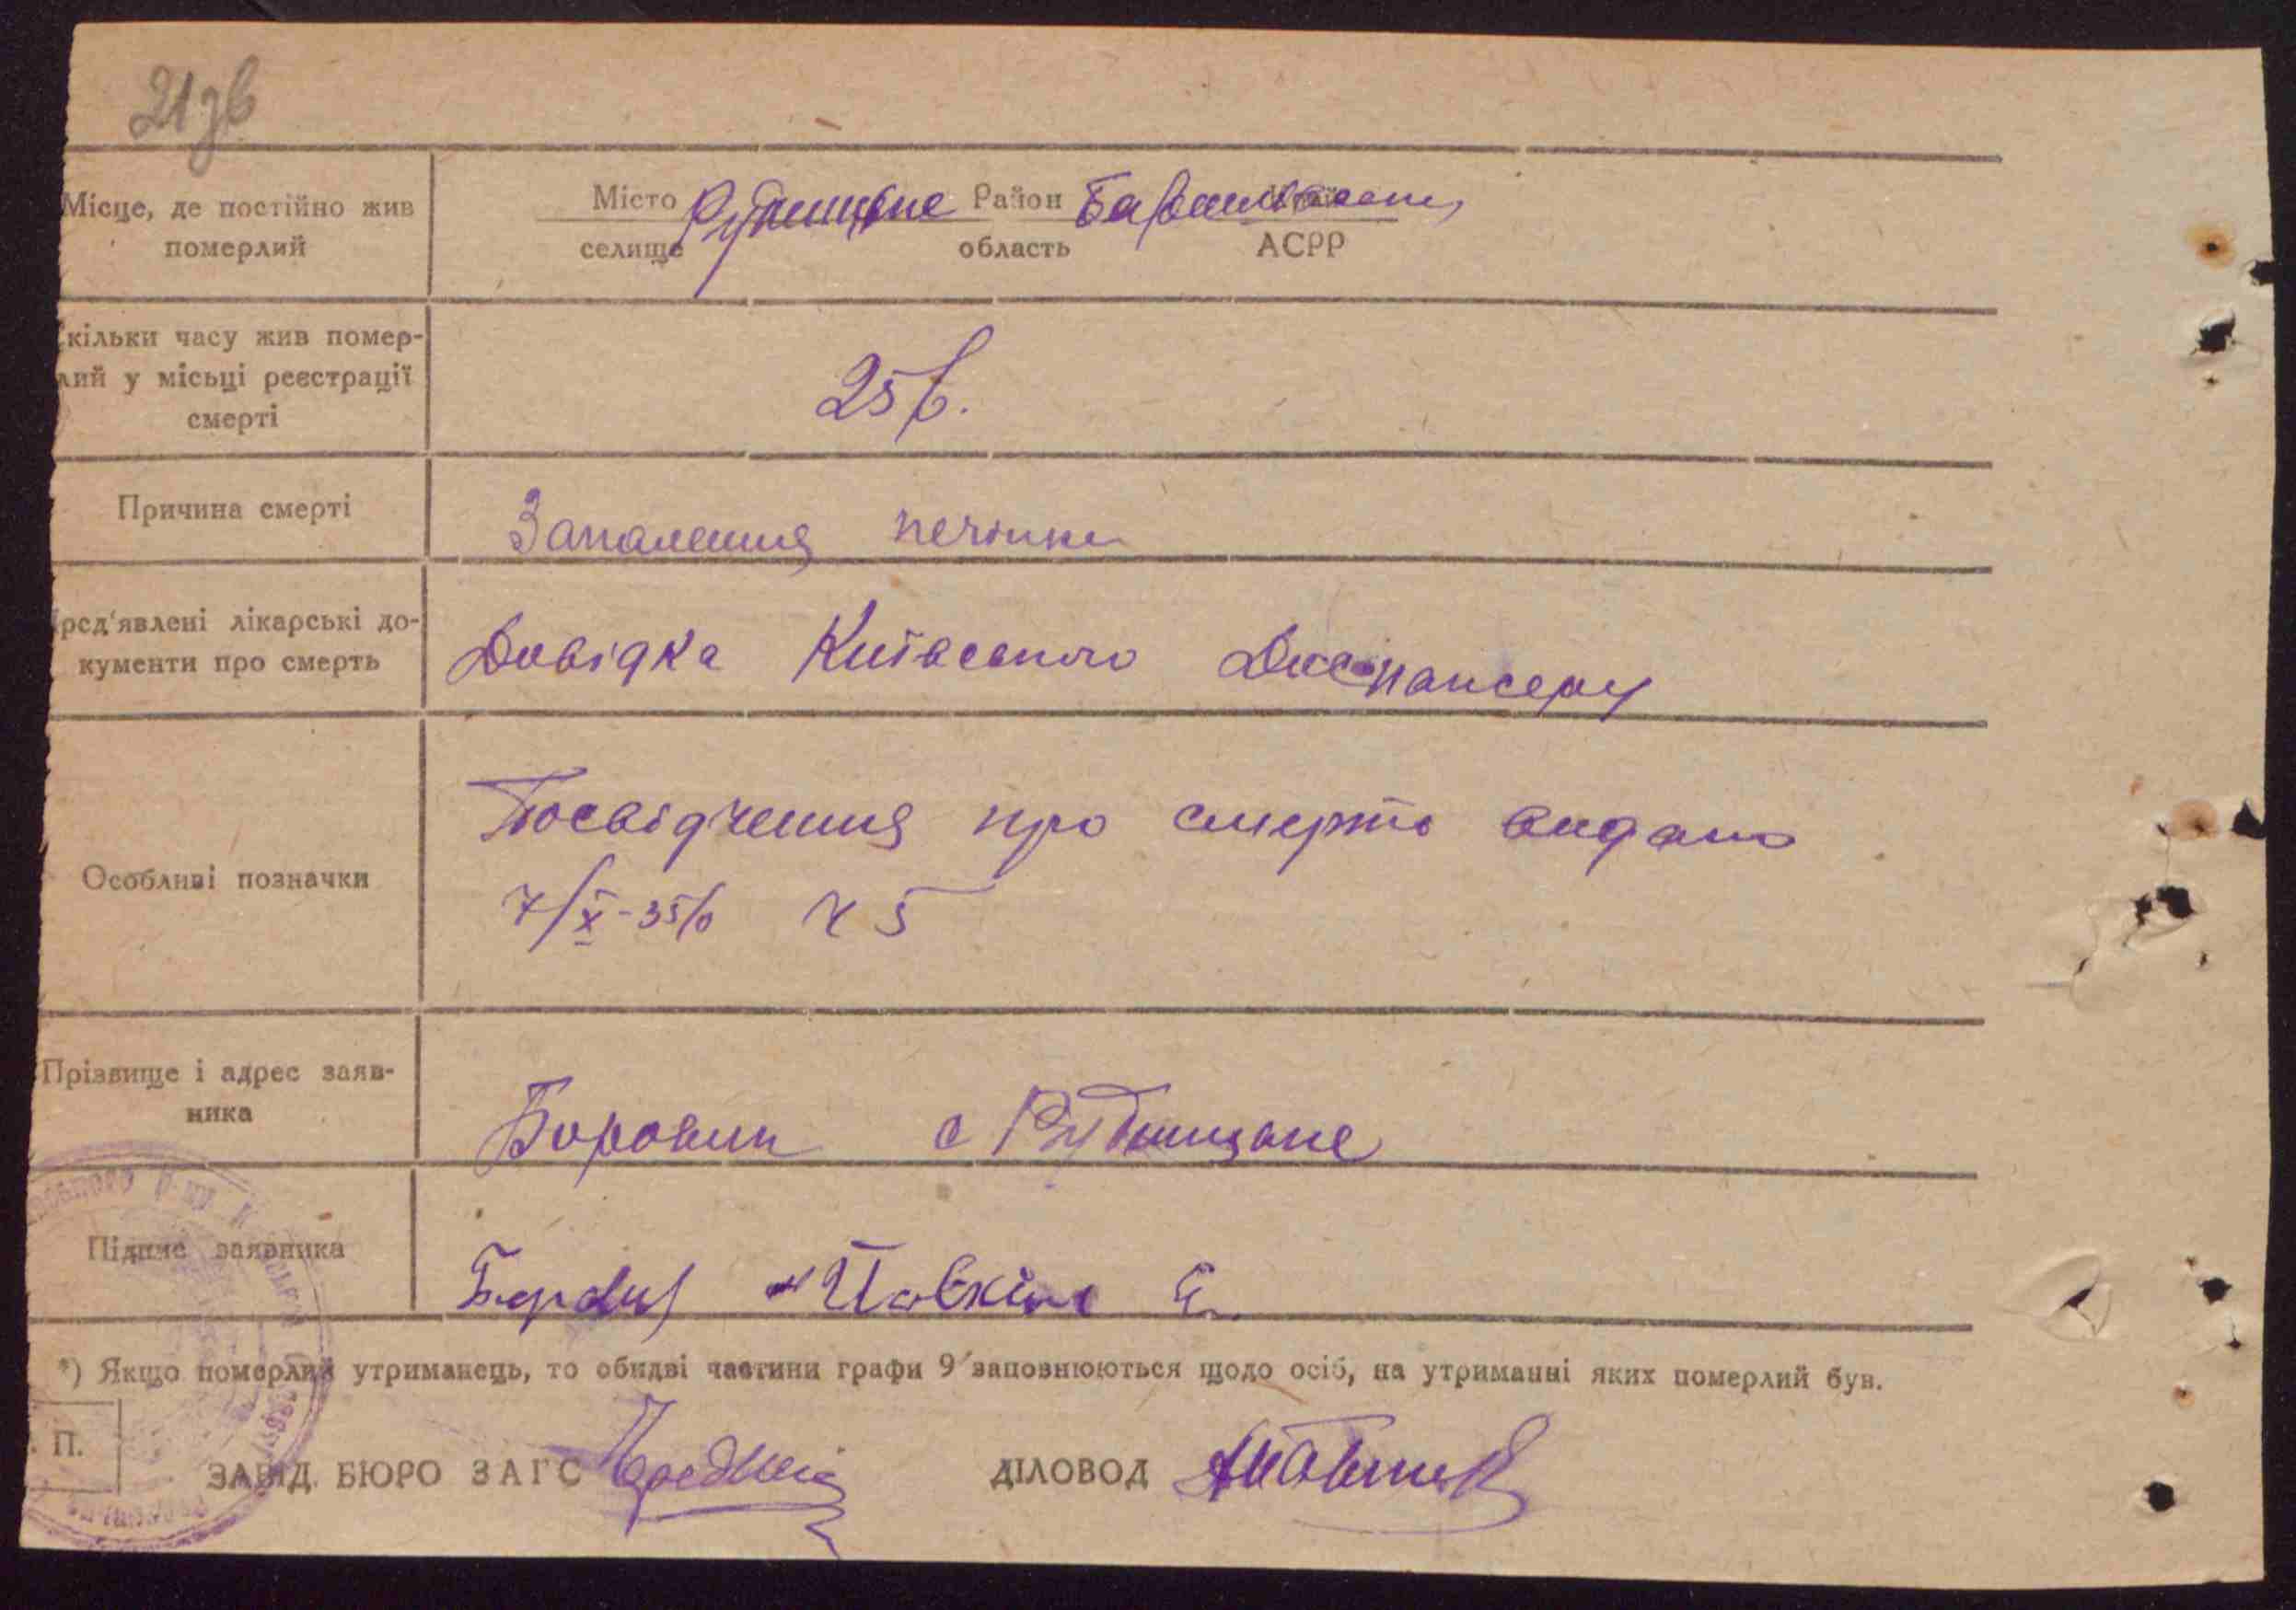 21зв
Місце, де постійно жив
померлий
Місто Рудницьке Район Баришівськи
селище область АСРР
кільки часу жив помер-
лий у місьці реєстрації
смерті
25 р.
Причина смерті
Запалення печінки
ред'явлені лікарські до-
кументи про смерть
Довідка Київського Диспансеру
Особливі позначки
Посвідчення про смерть видано
7/X-35р Ч 5
Прізвище і адрес заяв-
ника
Боровик с Рудницьке
Підпис заявника
*) Якщо померлий утриманець, то обидві частини графи 9 заповнюються щодо осіб, на утриманні яких померлий був.
П.
ЗАВІД. БЮРО ЗАГС
ДІЛОВОД